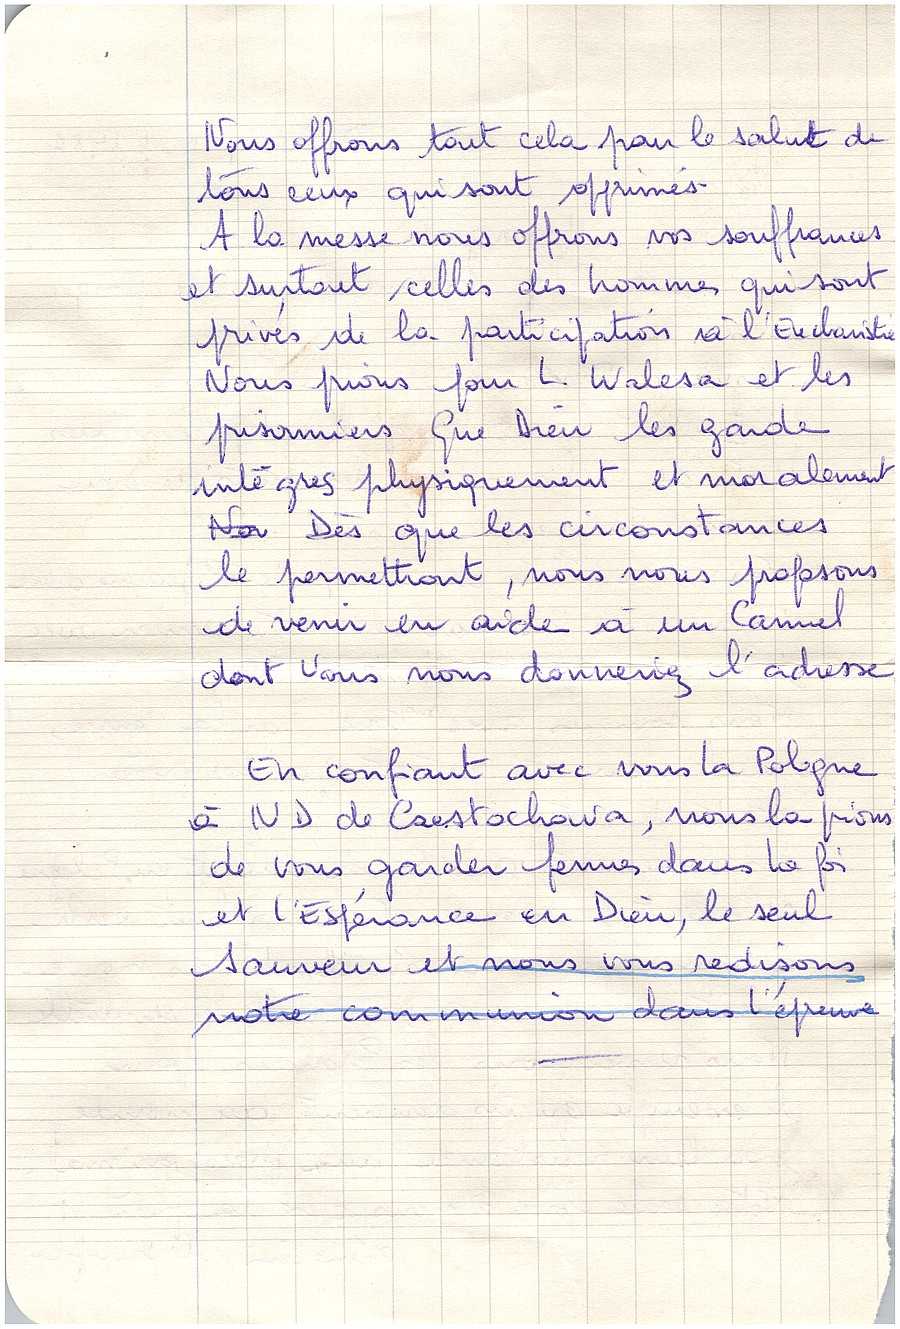 Nous offrons tout cela pour le salut de
tous ceux qui sont opprimés.
A la messe nous offrons vos souffrances
et surtout celles des hommes qui sont
privés de la participation à l'Eucharistie
Nous prions pour L. Walesa et les
prisonniers Que Dieu les garde
intègres physiquement et moralement
No Dès que les circonstances
le permettront, nous nous proposons
de venir en aide à un Carmel
dont Vous nous donneriez l'adresse
En confiant avec vous la Pologne
à ND de Czestochowa, nous la prions
de vous garder fermes dans la foi
et l'Espérance en Dieu, le seul
Sauveur et nous vous redisons
notre communion dans l'épreuve